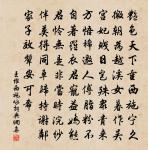 艷色天下重西施寧久
微朝為越溪女暮作吳
宮妃賤日豈殊眾貴來
方悟稀邀人傅脂粉不
自著羅衣君寵益嬌態
君憐無是非當時浣紗
伴莫得同車歸持謝鄰
家子效顰安可希
王維西施詠